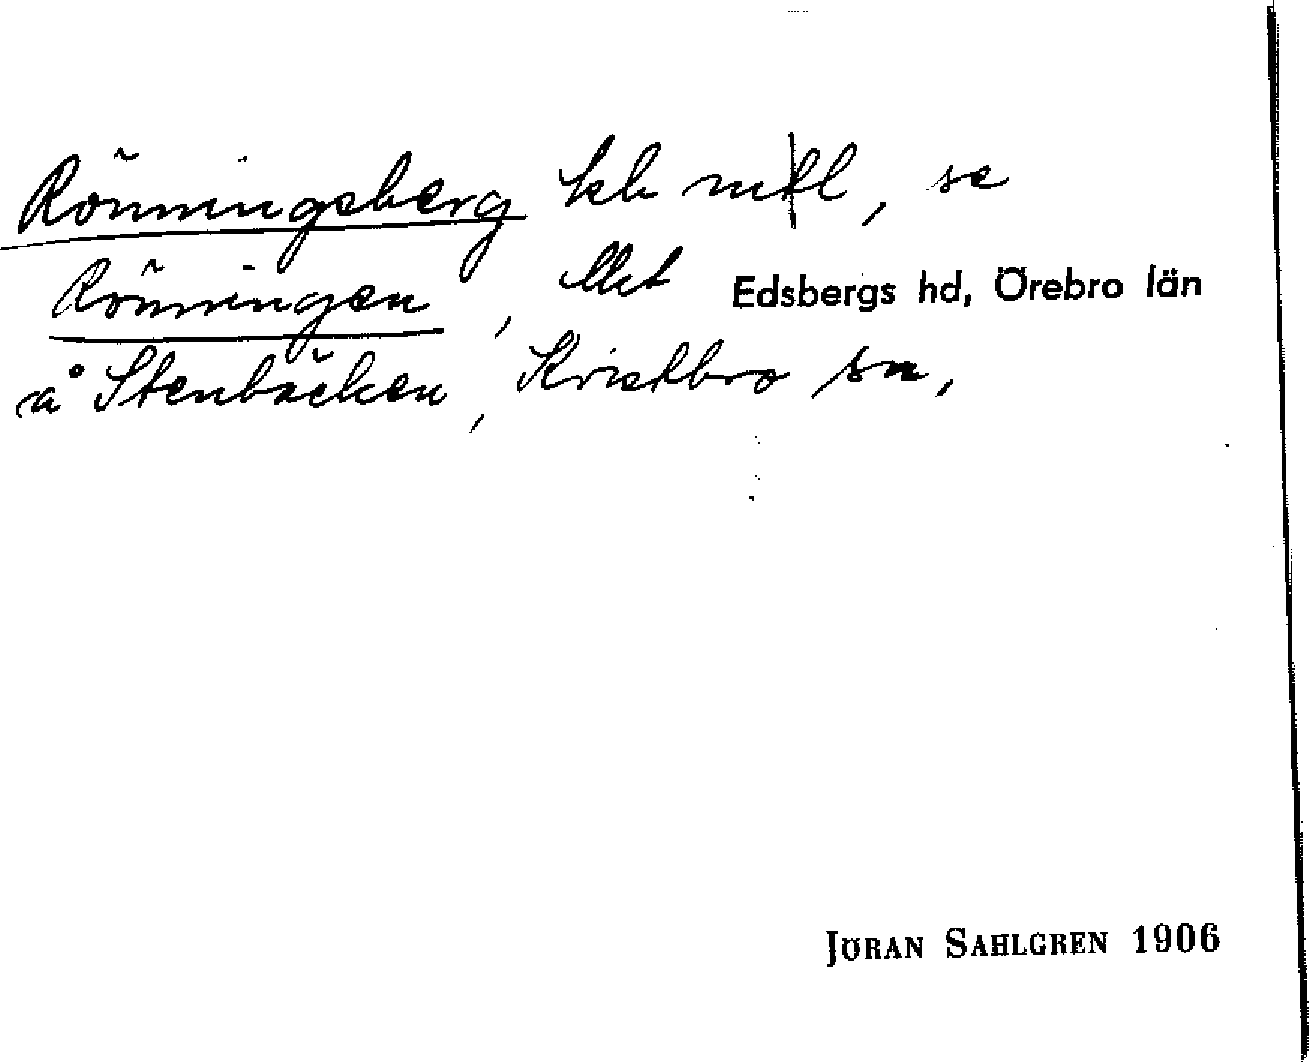 Rönningsberg kb mfl, se
Rönningen, llht
Edsbergs hd, Örebro län
å Stenbäcken, Kristbro sn,
JÖRAN SAHLGREN 1906